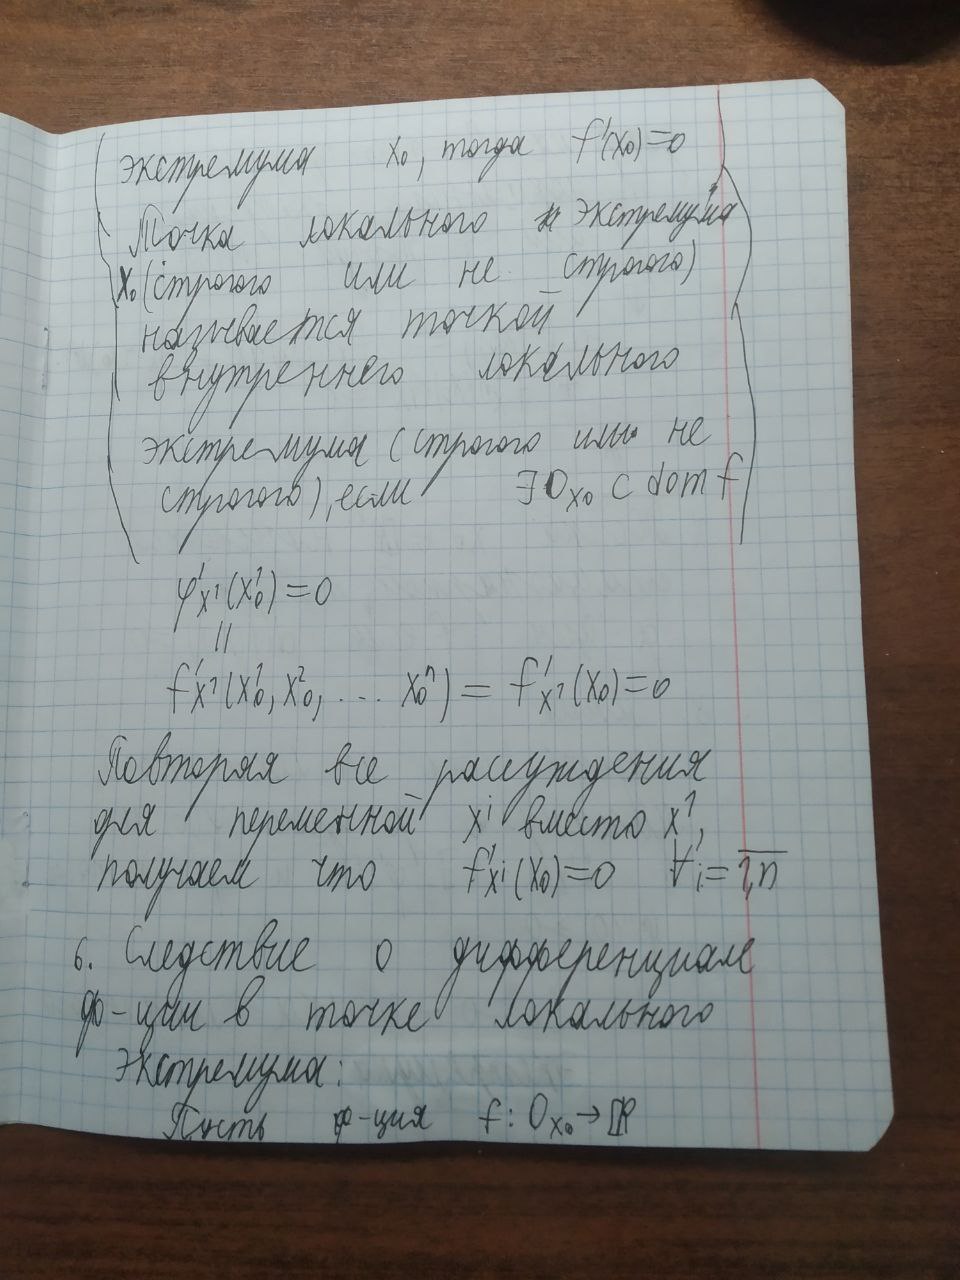 экстремума x₀, тогда f'(x₀)=0
Точка локального экстремума
x₀ (строгого или не строгого)
называется точкой
внутреннего локального
экстремума (строгого или не
строгого), если ∃ O_{x₀} ⊂ dom f
φ'_{x¹}(x¹₀)=0
||
f'_{x¹}(x¹₀, x²₀, ... xⁿ₀) = f'_{x¹}(x₀)=0
Повторяя все рассуждения
для переменной xⁱ вместо x¹,
получаем что f'_{xⁱ}(x₀)=0 ∀ i = \overline{1,n}
6. Следствие о дифференциале
ф-ции в точке локального
экстремума:
Пусть ф-ция f: O_{x₀} → ℝ